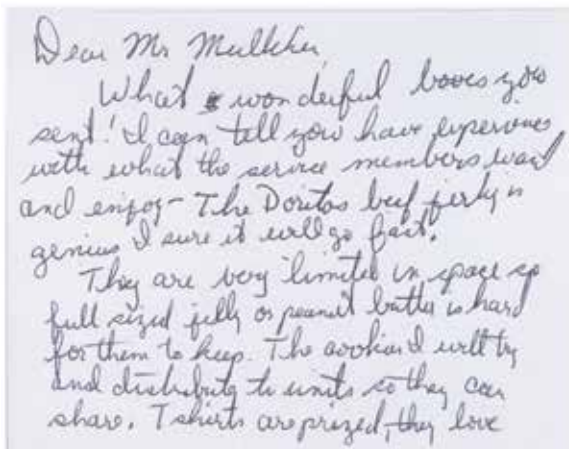 Dear Mr
What wonderful boxes you
sent! I can tell you have experience
with what the service members want
and enjoy - The Doritos beef jerky is
genius I sure it will go fast.
They are very limited in space so
full sized jelly or peanut butter is hard
for them to keep. The I will try
and distribute to units so they can
share. T shirts are prized, they love